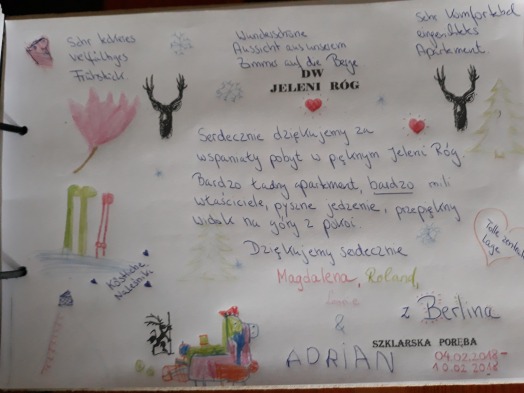 Sehr leckeres
vielfältiges
Frühstück.
Wunderschöne
Aussicht aus unserem
Zimmer auf die Berge
Sehr Komfortabel
Apartment.
DW
JELENI RÓG
Serdecznie dziękujemy za
wspaniały pobyt w pięknym Jeleni Róg.
Bardzo ładny apartment, bardzo mili
właściciele, pyszne jedzenie, przepiękny
widok na góry z pokoi.
Dziękujemy serdecznie
Magdalena, Roland,
z Berlina
&
ADRIAN
Tolle zentrale
Lage
Köstliche
SZKLARSKA PORĘBA
04.02.2018-
10.02.2018